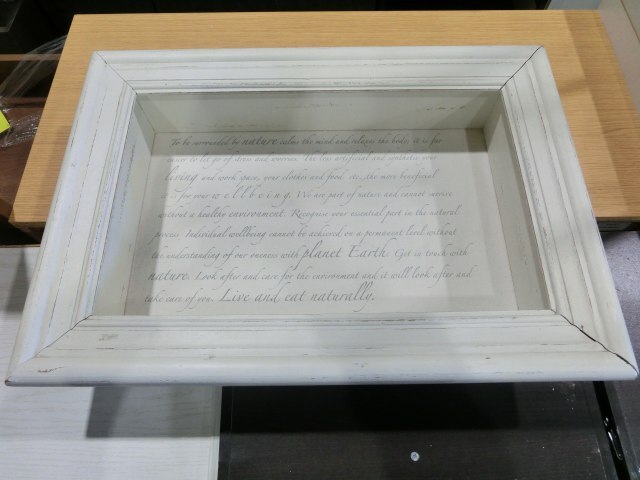 To be surrounded by nature calms the mind and relaxes the body; it is far
easier to let go of stress and worries. The less artificial and synthetic your
living and work space, your clothes and food, etc., the more beneficial
is for your wellbeing. We are part of nature and cannot survive
without a healthy environment. Recognise your essential part in the natural
process. Individual wellbeing cannot be achieved on a permanent level without
the understanding of our oneness with planet Earth. Get in touch with
nature. Look after and care for the environment and it will look after and
take care of you. Live and eat naturally.